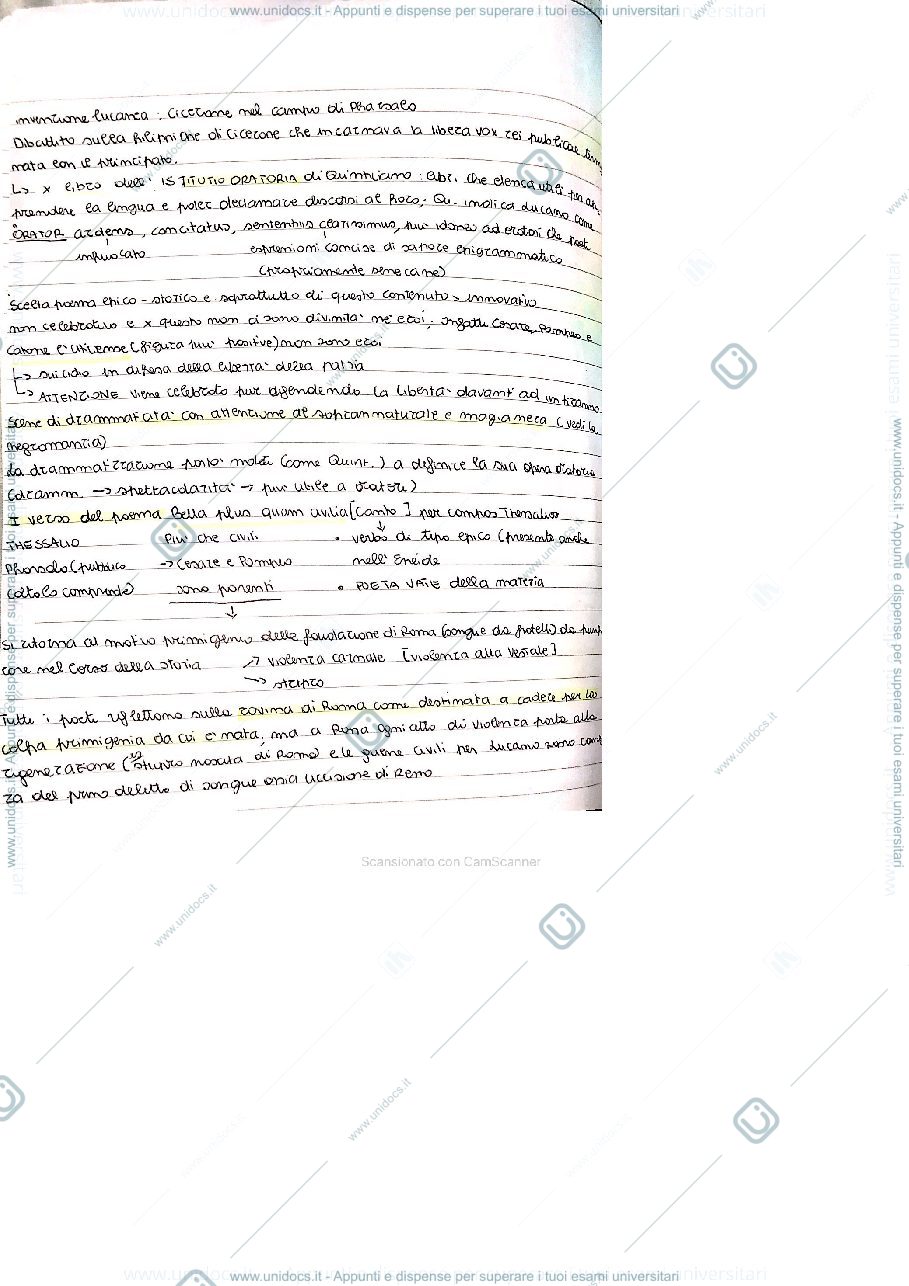 www.unidocs.it - Appunti e dispense per superare i tuoi esami universitari
invenzione lucanea : Cicerone nel campo di Pharsalo
Dibattito sulla figurine di Cicerone che incarnava la libera vox rei publicae
nata con il principato.
↳ x libro dell' ISTITUTIO ORATORIA di Quintiliano : libr. che elenca utili per
prendere la lingua e poter declamare discorsi al foro, Qu. indica Lucano come
ORATOR ardens, concitatus, sententiis clarissimus, piu' idoneo ad oratori che poeti
infuocato espressioni concise di sapore epigrammatico
(tropicamente senecane)
Scelta poema epico - storico e soprattutto di questo contenuto > innovativo
non celebrativo e x questo non ci sono divinita' ne' eroi, infatti Cesare, Pompeo e
Catone l'Uticense (figura piu' positiva) non sono eroi
↳ suicidio in difesa della liberta' della patria
↳ ATTENZIONE viene celebrato pur difendendo la liberta' davanti ad un tiranno
Scene di drammaticita' con attenzione al soprannaturale e magianeca (vedi la
negromanzia)
La drammatizzazione porto' molti (come Quint.) a definire la sua opera oratoria
(dramm. → spettacolarita' → piu' utile a oratori)
I verso del poema Bella plus quam civilia [canto] per campos Thessalios
THESSALIO Piu' che civili • verbo di tipo epico (presente anche
Pharsalo (pubblico → Cesare e Pompeo nell' Eneide
colto lo comprende) sono parenti • POETA VATE della materia
↓
Si ritorna al motivo primigenio della fondazione di Roma (sangue da fratello)
nel corso della storia → violenza carnale [violenza alla vestale]
→ stupro
Tutti i poeti riflettono sulla rovina di Roma come destinata a cadere per la
colpa primigenia da cui e' nata, ma a Roma ogni atto di violenza porta alla
rigenerazione (stupro nascita di Romo) e le guerre civili per Lucano sono
del primo delitto di sangue ossia uccisione di Remo
Scansionato con CamScanner
www.unidocs.it
www.unidocs.it
www.unidocs.it
www.unidocs.it - Appunti e dispense per superare i tuoi esami universitari